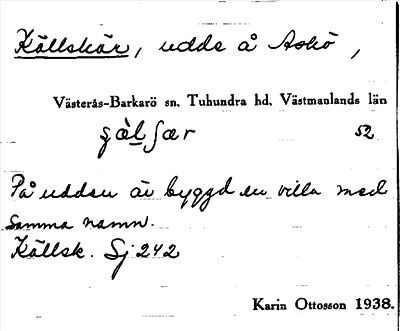 Källskär, udde å Askö,
Västerås-Barkarö sn. Tuhundra hd. Västmanlands län
52
På udden är byggd en villa med
samma namn.
Källsk. Sj 242
Karin Ottosson 1938.